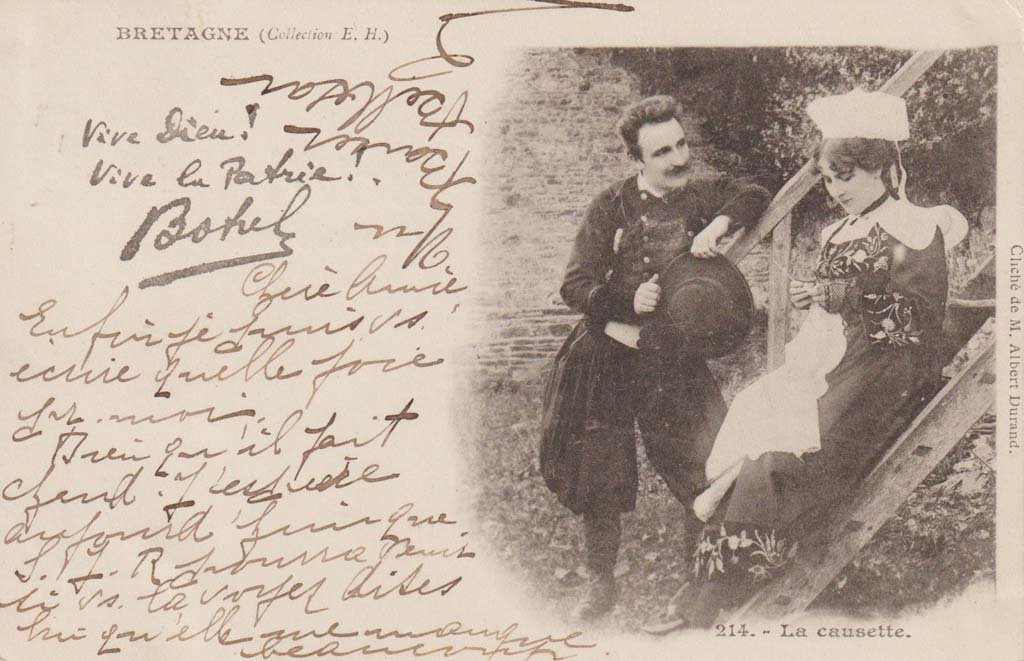 BRETAGNE (Collection E. H.)
Vive Dieu!
Vive la Patrie!
Botrel
Chère Amie
Enfin je puis vs.
écrire quelle joie
pr. moi.
Bien qu'il fait
chaud. J'espère
aujourd'hui que
S. M. R pourra venir
si vs. la voyez dites
lui qu'elle me manque
beaucoup
Un
214. - La causette.
Cliché de M. Albert Durand.